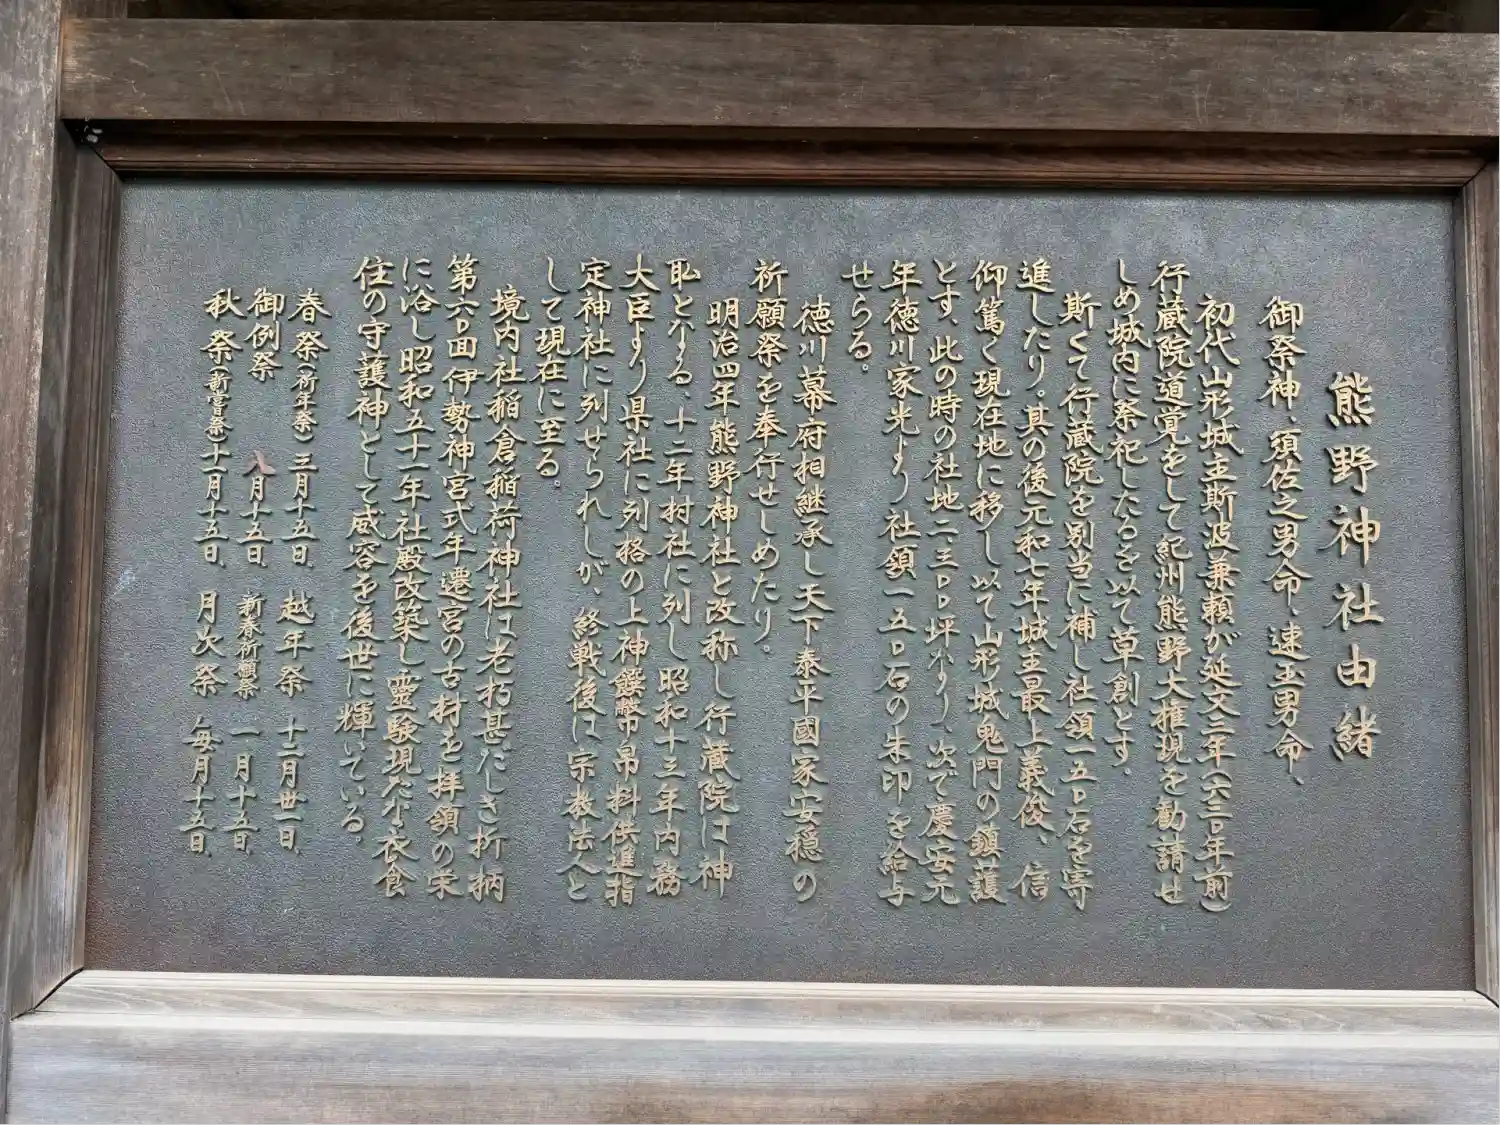 熊野神社由緒
御祭神、須佐之男命、速玉男命、
初代山形城主斯波兼頼が延文三年(六三〇年前)
行蔵院道覚をして紀州熊野大権現を勧請せ
しめ城内に祭祀したるを以て草創とす。
斯くて行蔵院を別当に補し社領一五〇石を寄
進したり。其の後元和七年城主最上義俊、信
仰篤く現在地に移し以て山形城鬼門の鎮護
とす、此の時の社地二、三〇〇坪なり、次で慶安元
年徳川家光より社領一五〇石の朱印を給与
せらる。
徳川幕府相継承し天下泰平國家安穏の
祈願祭を奉行せしめたり。
明治四年熊野神社と改称し行蔵院は神
職となる、十二年村社に列し昭和十三年内務
大臣より県社に列格の上神饌幣帛料供進指
定神社に列せられしが、終戦後は宗教法人と
して現在に至る。
境内社稲倉稲荷神社は老朽甚だしき折柄
第六〇回伊勢神宮式年遷宮の古材を拝領の栄
に浴し昭和五十一年社殿改築し霊験現たな衣食
住の守護神として威容を後世に輝いている。
春祭(祈年祭)三月十五日、越年祭 十二月丗一日、
御例祭 八月十五日、新春祈願祭 一月十五日、
秋祭(新嘗祭)十一月十五日、月次祭 毎月十五日、